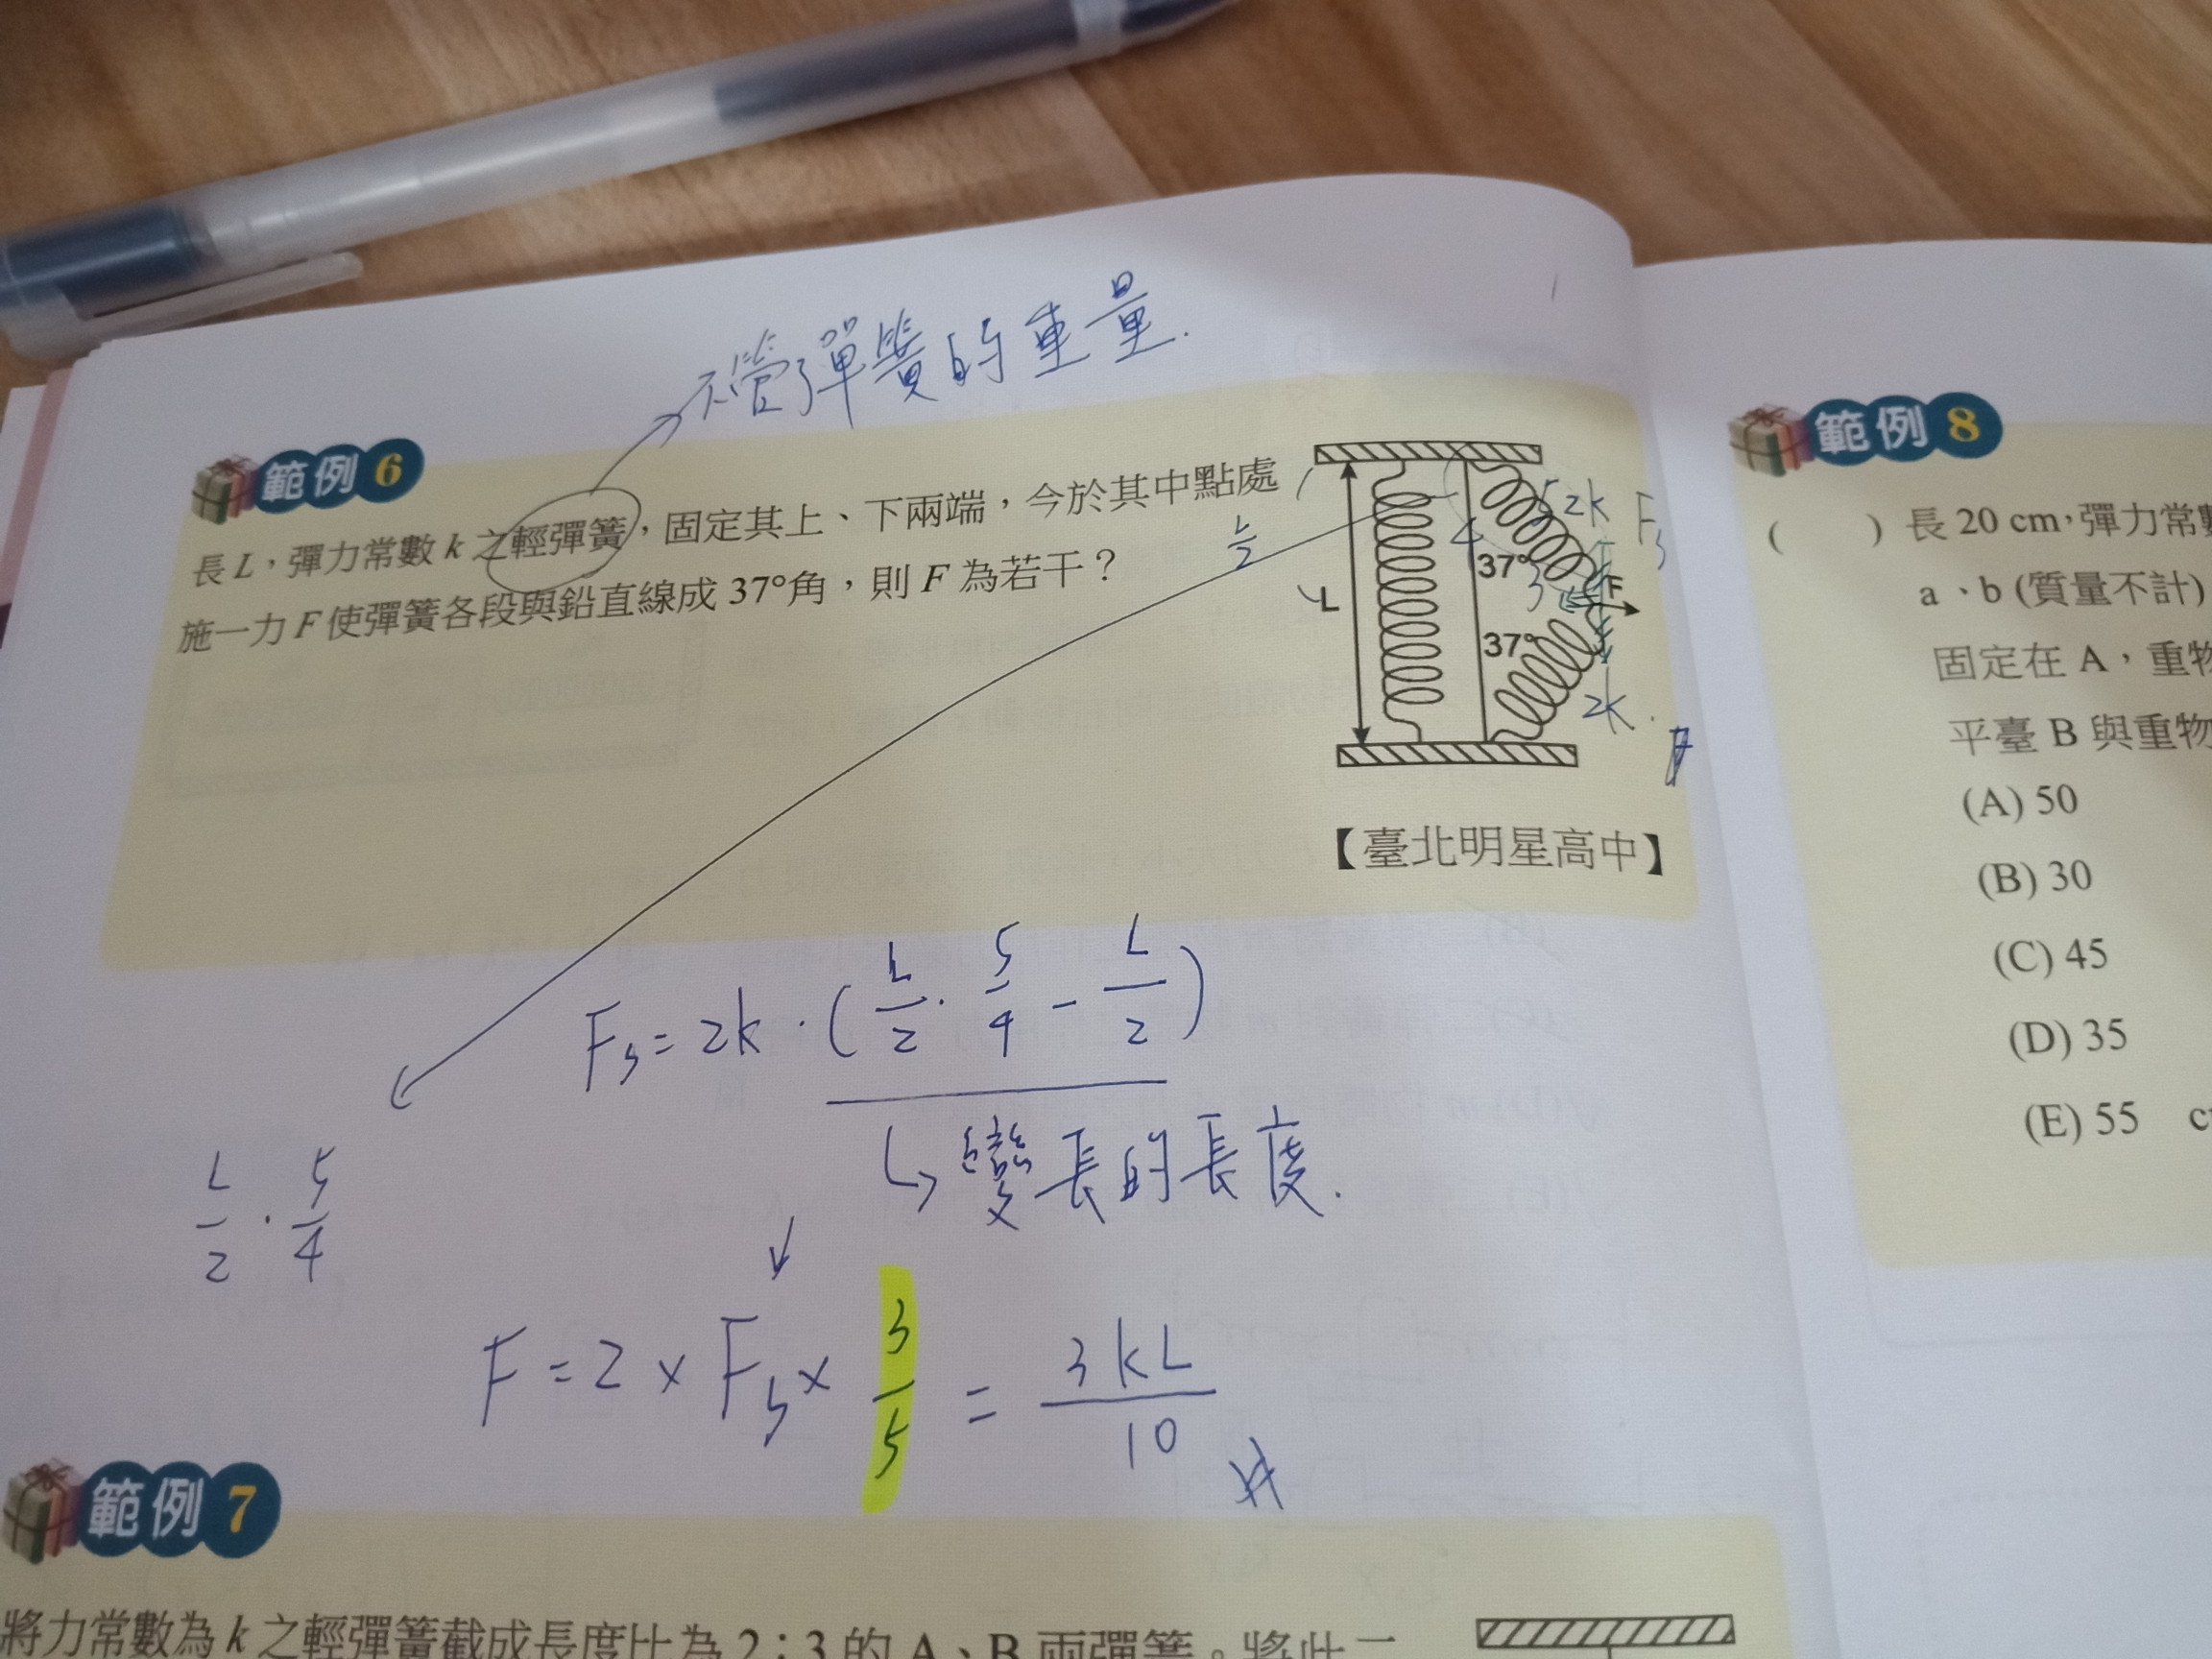 不管彈簧的重量.
範例 6
長 L，彈力常數 k 之輕彈簧，固定其上、下兩端，今於其中點處
施一力 F 使彈簧各段與鉛直線成 37°角，則 F 為若干？
L
L/2
4
5
3
2k
Fs
37°
F
37°
2k
【臺北明星高中】
Fs = 2k · (L/2 · 5/4 - L/2)
↳ 變長的長度.
L/2 · 5/4
F = 2 × Fs × 3/5 = 3kL/10
範例 7
將力常數為 k 之輕彈簧截成長度比為 2：3 的 A、B 兩彈簧。將此二
範例 8
( ) 長 20 cm，彈力常
a、b (質量不計)
固定在 A，重物
平臺 B 與重物
(A) 50
(B) 30
(C) 45
(D) 35
(E) 55